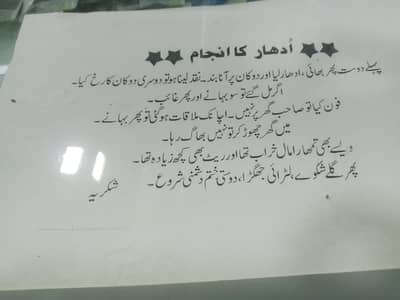 اُدھار کا انجام
پہلے دوست پھر بھائی، ادھار لیا اور دوکان پر آنا بند۔ نقد لینا ہو تو دوسری دوکان کا رخ کیا۔
اگر مل گئے تو سو بہانے اور پھر غائب۔
فون کیا تو صاحب گھر پر نہیں۔ اچانک ملاقات ہو گئی تو پھر بہانے۔
میں گھر چھوڑ کر تو نہیں بھاگ رہا۔
ویسے بھی تمھارا مال خراب تھا اور ریٹ بھی کچھ زیادہ تھا۔
پھر گلے شکوے، لڑائی جھگڑا، دوستی ختم دشمنی شروع۔
شکریہ